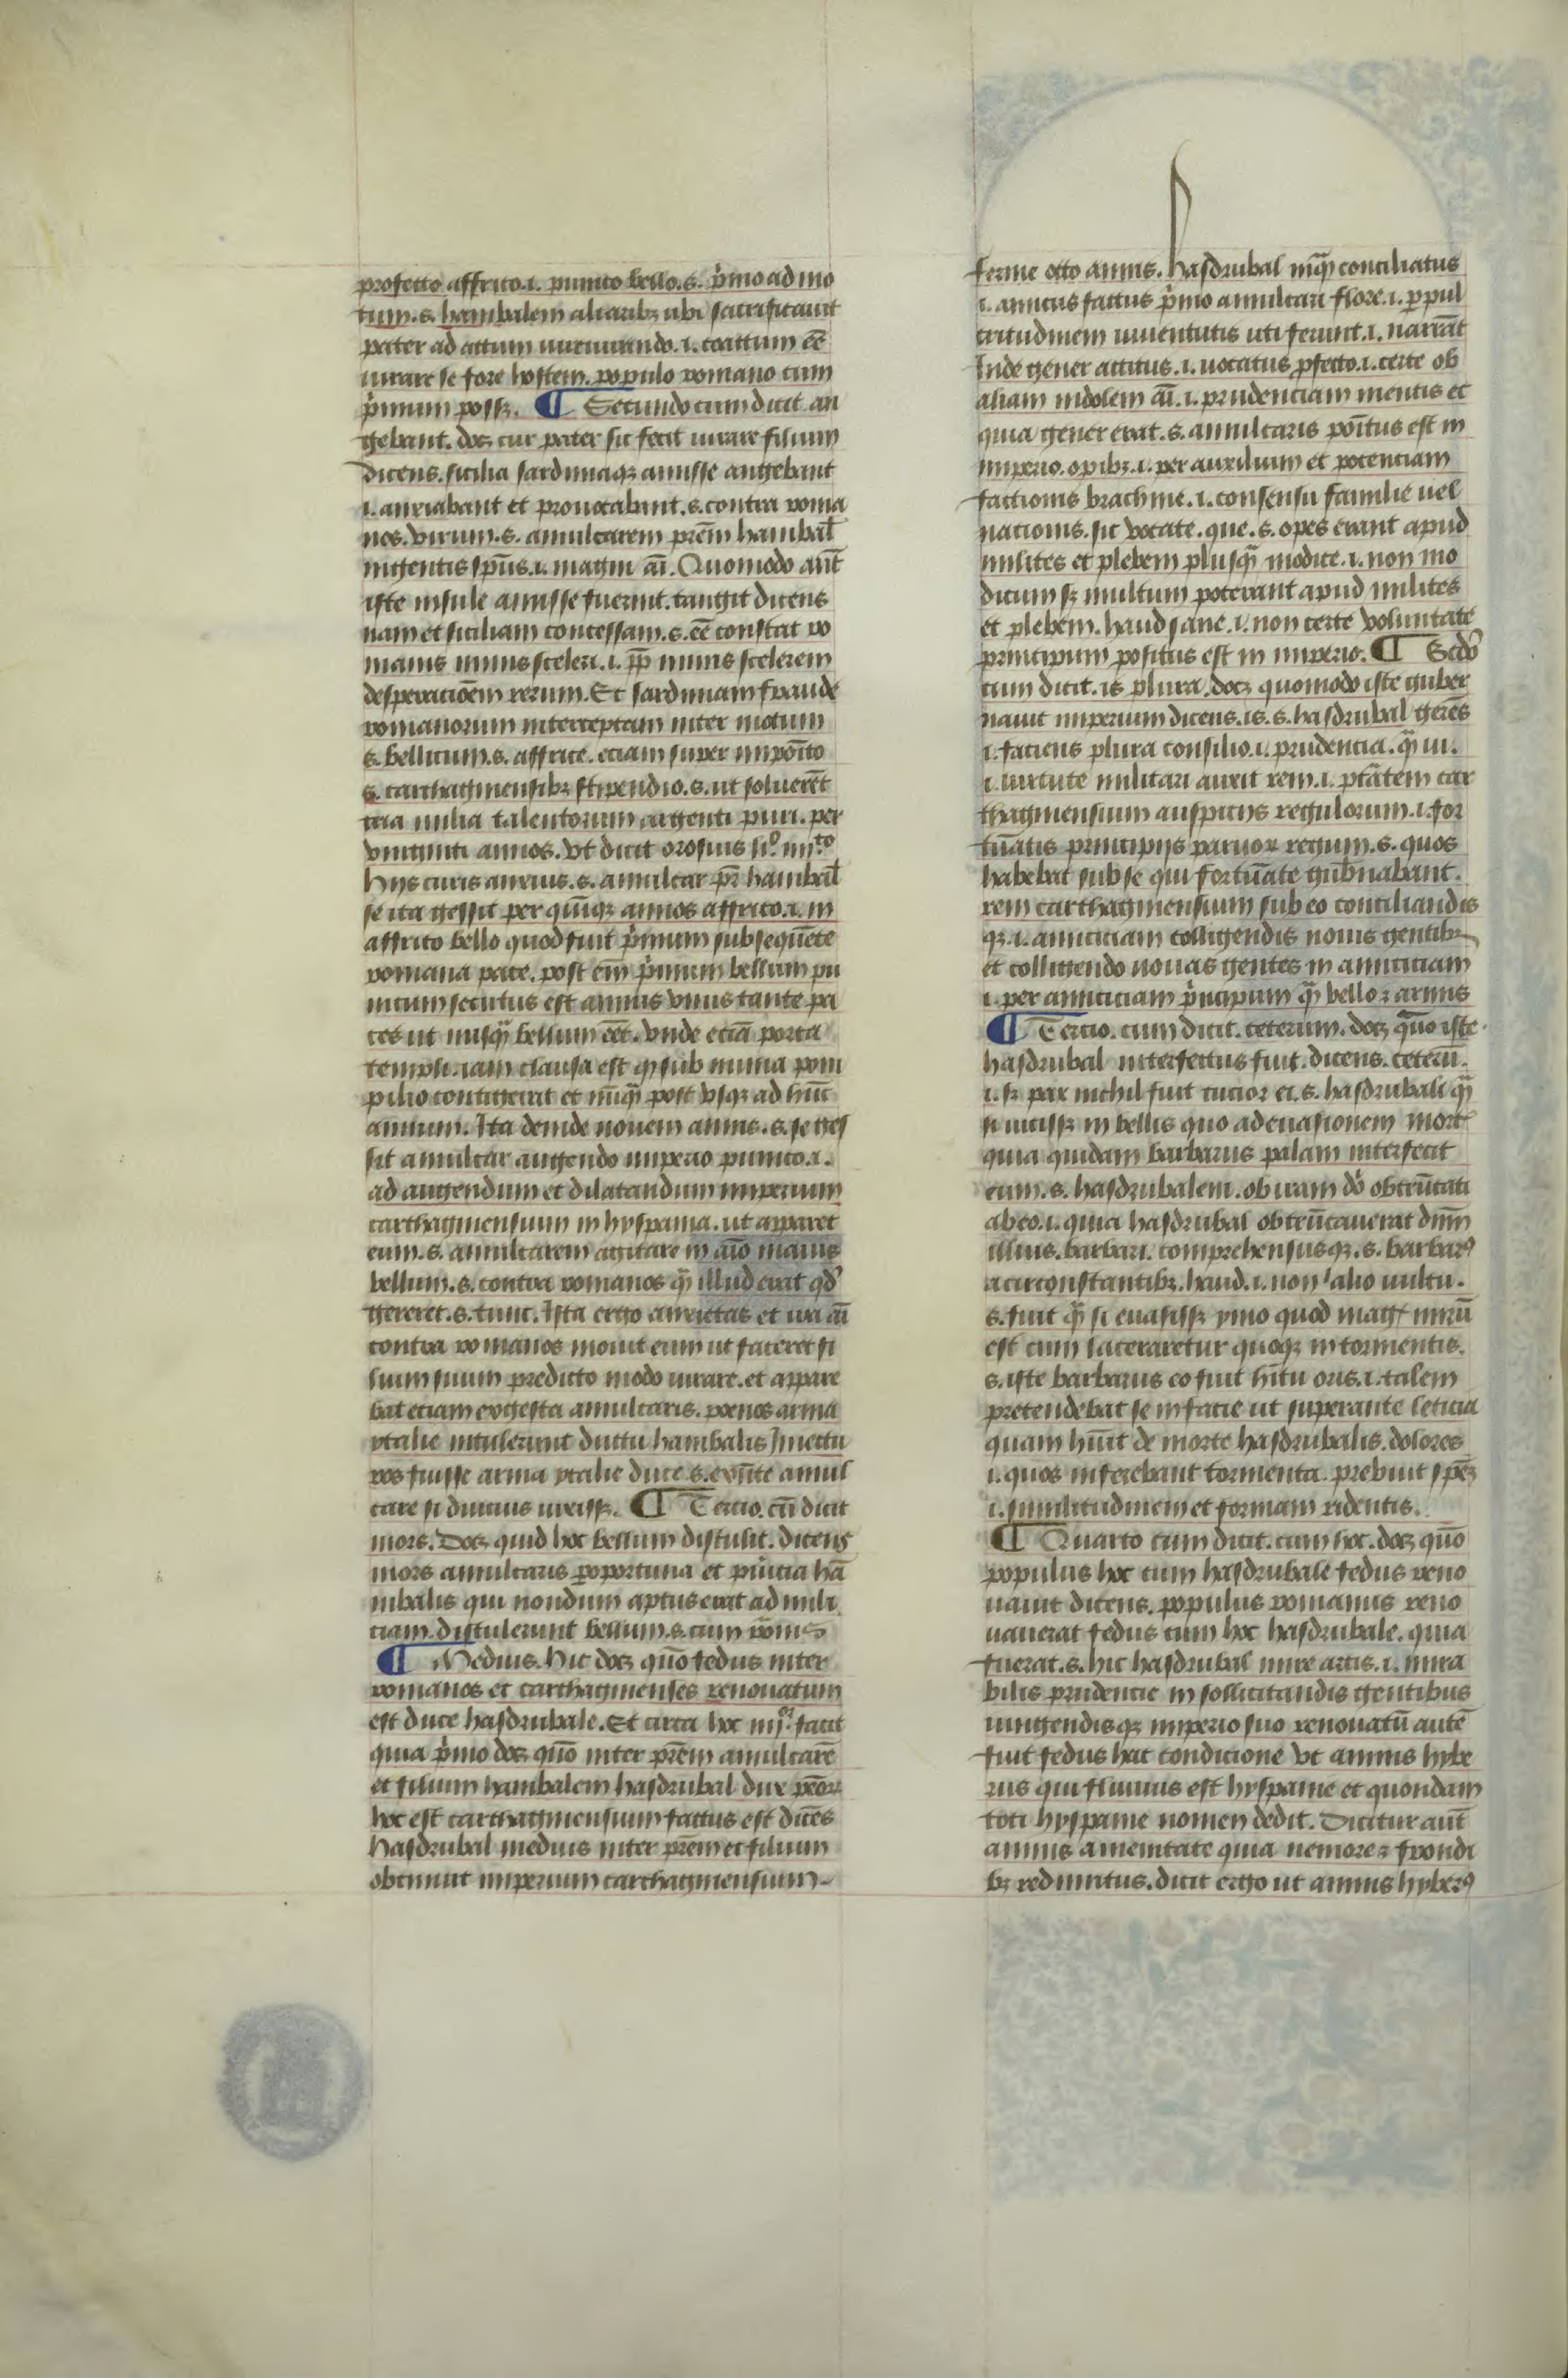 profecto affrico .i. punico bello .s. pͥmo ad mo
tum .s. hanibalem altaribꝫ ubi sacrificauit
pater ad actum iureiurando .i. coactum eē
iurare se fore hostem. populo romano cum
pͥmum possꝫ. ¶ Secundo cum dicit an
gebant. docꝫ cur pater sic fecit iurare filium
dicens. sicilia sardiniaqꝫ amisse angebant
.i. anxiabant et prouocabant .s. contra roma
nos. virum .s. amilcarem prēm hanibal̄
ingentis spūs .i. magni aī. Quomodo aūt
iste insule amisse fuerunt. tangit dicens
nam et siciliam concessam .s. eē constat ro
manis nimis sceleri .i. pp̄ nimis scelerem
desperacioēm rerum. Et sardiniam fraude
romanorum interceptam inter motum
.s. bellicum .s. affrice. eciam super imposito
.s. carthaginensibꝫ stipendio .s. ut soluerēt
tria milia talentorum argenti puri. per
viginti annos. Vt dicit orosius li.º iiii.to
Hiis curis anxius .s. amilcar pr̄ hanibal̄
se ita gessit per quīqꝫ annos affrico .i. in
affrico bello quod fuit pͥmum subsequēte
romana pace. post em̄ pͥmum bellum pu
nicum secutus est annus vnus tante pa
cis ut nusqᷓ bellum eēt. Vnde eciā porta
templi iani clausa est qͥ sub numa pom
pilio contigerat et nūqᷓ post vsqꝫ ad hūc
annum. Ita deinde nouem annis .s. se ges
sit amilcar augendo imperio punico .i.
ad augendum et dilatandum imperium
carthaginensium in hyspania. ut apparet
eum .s. amilcarem agitare in aīo maius
bellum .s. contra romanos qᷓ illud erat qd̓
gereret .s. tunc. Ista ergo anxietas et ira aī
contra romanos mouit eum ut faceret fi
lium suum predicto modo iurare. et appare
bat eciam ex gesta amilcaris. poenos arma
ytalie intulerunt ductu hanibalis Inectu
ros fuisse arma ytalie duce .s. exn̄te amil
care si diucius vixissꝫ. ¶ Tercio. cū dicit
mors. Docꝫ quid hoc bellum distulit. dicens
mors amilcaris ꝑoportuna et pueͥcia hā
nibalis qui nondum aptus erat ad mili
ciam. distulerunt bellum .s. cum romīs
¶ Medius. Hic docꝫ quō fedus inter
romanos et carthaginenses renouatum
est duce hasdrubale. Et circa hoc iiii.or facit
quia pͥmo docꝫ quō inter prēm amilcarē
et filium hanibalem hasdrubal dux penoꝝ
hoc est carthaginensium factus est dicēs
Hasdrubal medius inter prēm et filium
obtinuit imperium carthaginensium
ferme octo annis. Hasdrubal inqᷓ conciliatus
.i. amicus factus pͥmo amilcari flore .i. ꝑ pul
critudinem iuuentutis uti ferunt .i. narrāt
Inde gener accitus .i. uocatus ꝓfecto .i. certe ob
aliam indolem aī .i. prudenciam mentis et
quia gener erat .s. amilcaris poītus est in
imperio. opibꝫ .i. per auxilium et potenciam
factionis brachine .i. consensu familie uel
nacionis. sic vocate. que .s. opes erant apud
milites et plebem plusqᷓ modice .i. non mo
dicum sꝫ multum poterant apud milites
et plebem. haud sane .i. non certe voluntate
principum positus est in imperio. ¶ Scd̓o
cum dicit. is plura. docꝫ quomodo iste guber
nauit imperium dicens. is .s. hasdrubal gerēs
.i. faciens plura consilio .i. prudencia. qᷓ ui.
.i. uirtute militari auxit rem .i. ptātem car
thaginensium auspiciis regulorum .i. for
tunatis principiis paruoꝝ regum .s. quos
habebat sub se qui fortūate gub̄nabant.
rem carthaginensium sub eo conciliandis
qꝫ .i. amiciciam colligendis nouis gentibꝫ
et colligendo nouas gentes in amiciciam
.i. per amiciciam pͥncipum qᷓ bello ⁊ armis
¶ Tercio. cum dicit. ceterum. docꝫ quō iste
hasdrubal interfectus fuit. dicens. ceterū.
.i. sꝫ pax nichil fuit tucior ei .s. hasdrubali qᷓ
si uicissꝫ in bellis quo ad euasionem mort
quia quidam barbarus palam interfecit
eum .s. hasdrubalem. ob iram dn̄i obtrūcati
ab eo .i. quia hasdrubal obtrūcauerat dnm̄
illius. barbari. comprehensusqꝫ .s. barbarꝰ
a circonstantibꝫ. haud .i. non alio uultu.
.s. fuit qᷓ si euasissꝫ ymo quod mag mirū
est cum laceraretur quoqꝫ in tormentis.
.s. iste barbarus eo fuit hītu oris .i. talem
pretendebat se in facie ut superante leticia
quam hūit de morte hasdrubalis. dolores
.i. quos inferebant tormenta. prebuit spēꝫ
.i. similitudinem et formam ridentis.
¶ Quarto cum dicit. cum hoc. docꝫ quō
populus hoc cum hasdrubale fedus reno
uauit dicens. populus romanus reno
uauerat fedus cum hoc hasdrubale. quia
fuerat .s. hic hasdrubal mire artis .i. mira
bilis prudencie in sollicitandis gentibus
iungendisqꝫ imperio suo renouatū autē
fuit fedus hac condicione vt amnis hybe
rus qui fluuius est hyspanie et quondam
toti hyspanie nomen dedit. Dicitur aūt
amnis amenitate quia nemore ⁊ frondi
bꝫ redimitus. dicit ergo ut amnis hyberꝰ